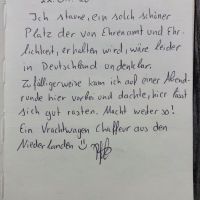 Ich staune, ein solch schöner
Platz der von Ehrenamt und Ehr-
lichkeit, erhalten wird, wäre leider
in Deutschland undenkbar.
Zufälligerweise kam ich auf einer Abend-
runde hier vorbei und dachte, hier lässt
sich gut rasten. Macht weiter so!
Ein Vrachtwagen Chaffeur aus den
Niederlanden